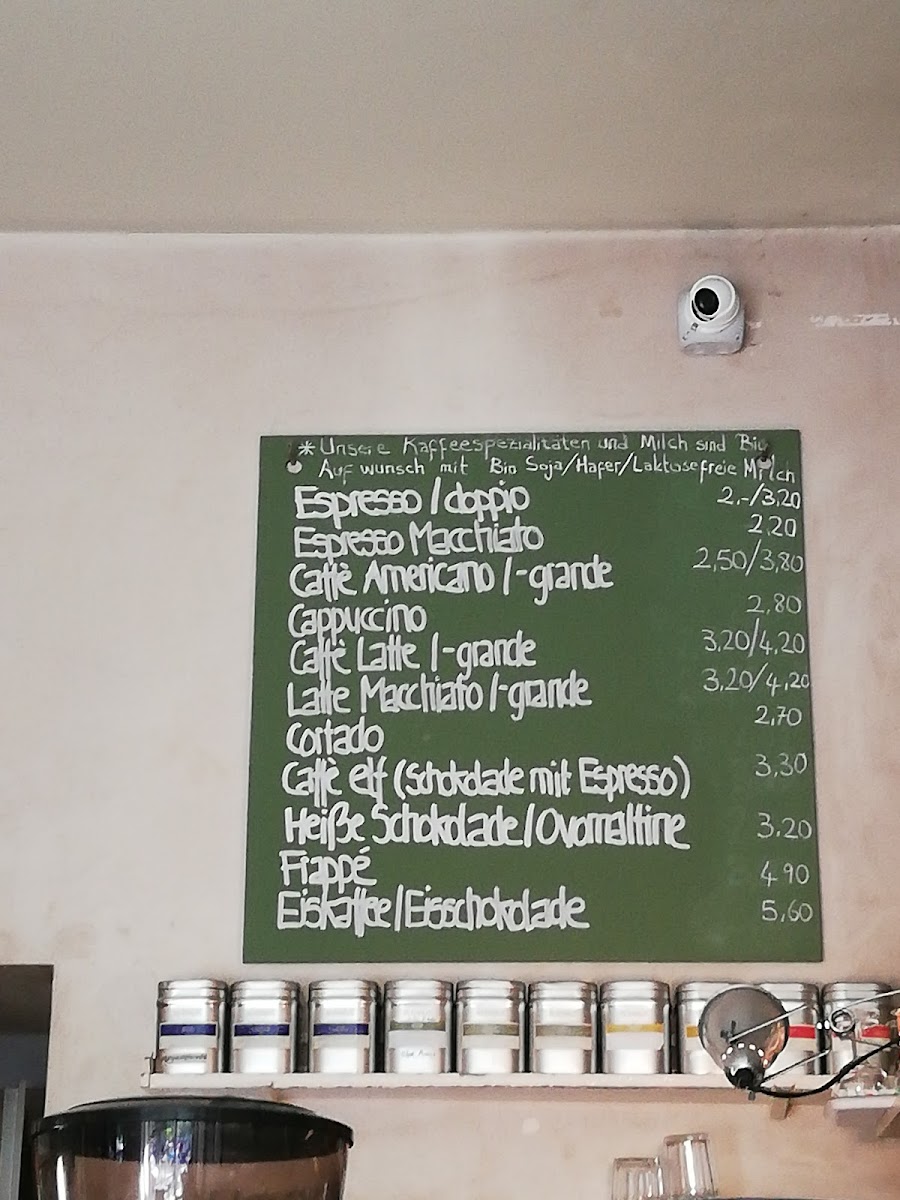 *Unsere Kaffeespezialitäten und Milch sind Bio
Auf wunsch mit Bio Soja/Hafer/Laktosefreie Milch
Espresso / doppio 2.-/3,20
Espresso Macchiato 2,20
Caffè Americano /-grande 2,50/3,80
Cappuccino 2,80
Caffè Latte /-grande 3,20/4,20
Latte Macchiato /-grande 3,20/4,20
Cortado 2,70
Caffè elf (Schokolade mit Espresso) 3,30
Heiße Schokolade/Ovomaltine 3,20
Frappé 4 90
Eiskaffee/Eisschokolade 5,60